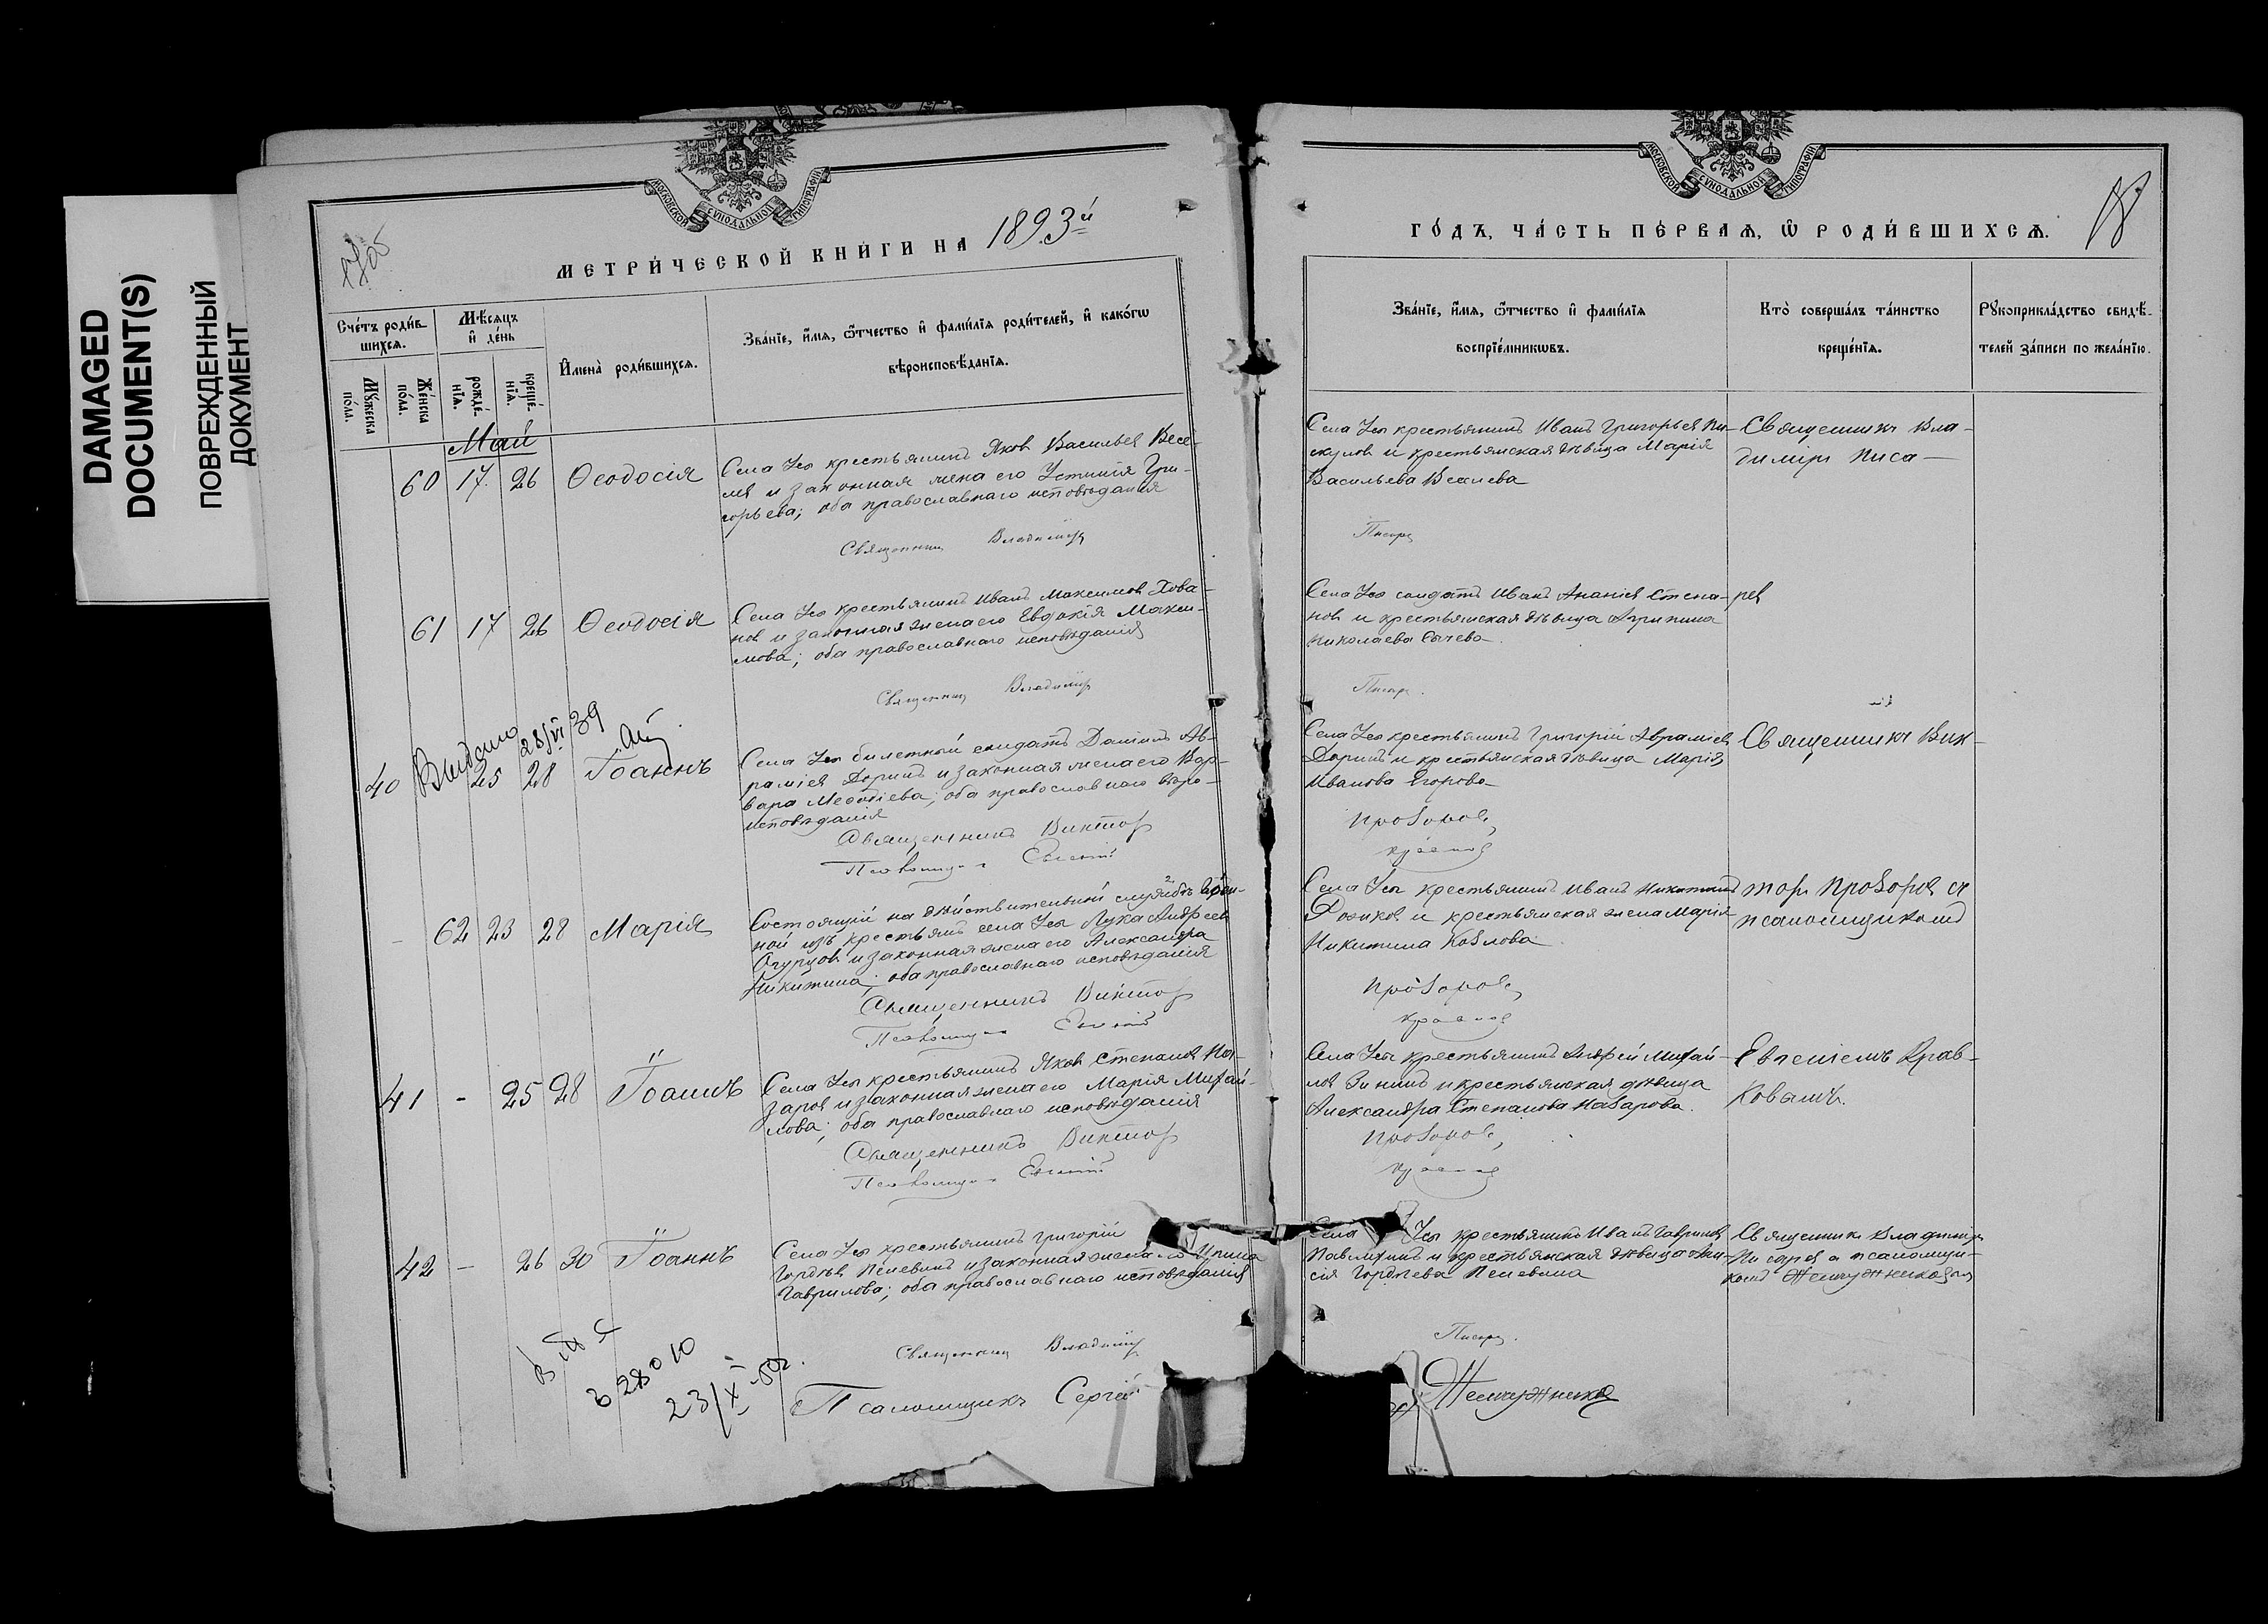 DAMAGED
DOCUMENT(S)
ПОВРЕЖДЕННЫЙ
ДОКУМЕНТ
МОСКОВСКОЙ СѴНОДАЛЬНОЙ ТИПОГРАФІИ
МЕТРИ́ЧЕСКОЙ КНИ́ГИ НА 1893й
Сче́тъ роди́в-
шихсѧ.
Мѣ́сѧцъ
и҆ де́нь
Мꙋ́жеска
по́ла.
Же́нска
по́ла.
рожде́-
нїѧ.
креще́-
нїѧ.
И҆мена̀ роди́вшихсѧ.
Зва́нїе, и҆́мѧ, ѻ҆́тчество и҆ фами́лїѧ роди́телей, и҆ како́гѡ
вѣроисповѣ́данїѧ.
Май
60 17 26 Ѳеодосія
Села Усы крестьянинъ Яковъ Васильевъ Весе-
левъ и законная жена его Устинія Гри-
горьева; оба православнаго исповѣданія
Священникъ Владиміръ
61 17 26 Ѳеодосія
Села Усы крестьянинъ Иванъ Максимовъ Хова-
новъ и законная жена его Евдокія Макси-
мова; оба православнаго исповѣданія
Священникъ Владиміръ
Выдано 28/VI 39
40 25 28 Іоаннъ
Села Усы билетный солдатъ Даніилъ Ав-
раміевъ Доринъ и законная жена его Вар-
вара Меѳодіева; оба православнаго вѣро-
исповѣданія
Священникъ Виктор
Псаломщикъ Евгеній
- 62 23 28 Марія
Состоящій на дѣйствительной службѣ
ной изъ крестьянъ села Усы Лука Андреевъ
Огурцовъ и законная жена его Александра
Никитина; оба православнаго исповѣданія
Священникъ Виктор
Псаломщикъ Евгеній
41 - 25 28 Іоаннъ
Села Усы крестьянинъ Яковъ Степановъ На-
заровъ и законная жена его Марія Михай-
лова; оба православнаго исповѣданія
Священникъ Виктор
Псаломщикъ Евгеній
42 - 26 30 Іоаннъ
Села Усы крестьянинъ Григорій
Гордѣевъ Пелевинъ и законная жена его Ирина
Гаврилова; оба православнаго исповѣданія
Священникъ Владиміръ
Псаломщикъ Сергій
23/X
МОСКОВСКОЙ СѴНОДАЛЬНОЙ ТИПОГРАФІИ
ГО́ДЪ, ЧА́СТЬ ПЕ́РВАѦ, Ѡ҆ РОДИ́ВШИХСѦ.
Зва́нїе, и҆́мѧ, ѻ҆́тчество и҆ фами́лїѧ
воспрїе́мникѡвъ.
Кто̀ соверша́лъ та́инство
креще́нїѧ.
Рꙋкоприкла́дство свидѣ́-
телей за́писи по жела́нїю.
Села Усы крестьянинъ Иванъ Григорьевъ Пи-
скуновъ и крестьянская дѣвица Марія
Васильева Веселева
Священникъ Вла-
диміръ Писа-
Писаревъ
Села Усы солдатъ Иванъ Ананіевъ Степа-
новъ и крестьянская дѣвица Агрипина
Николаева Сычева
ревъ
Писаревъ
Села Усы крестьянинъ Григорій Авраміевъ
Доринъ и крестьянская дѣвица Марія
Иванова Егорова
Священникъ Вик-
Прозоровъ,
Села Усы крестьянинъ Иванъ Никитинъ
и крестьянская жена Марія
Никитина Козлова
торъ Прозоровъ съ
псаломщикомъ
Прозоровъ,
Села Усы крестьянинъ Андрей Михай-
ловъ Зининъ и крестьянская дѣвица
Александра Степанова Назарова.
Евгеніемъ
Прозоровъ,
Села Усы крестьянинъ Иванъ Гавриловъ
Павлихинъ и крестьянская дѣвица Ани-
сія Гордѣева Пелевина
Священникъ Владиміръ
Писаревъ съ псаломщи-
комъ Жемчужниковымъ
Писаревъ
Жемчужниковъ